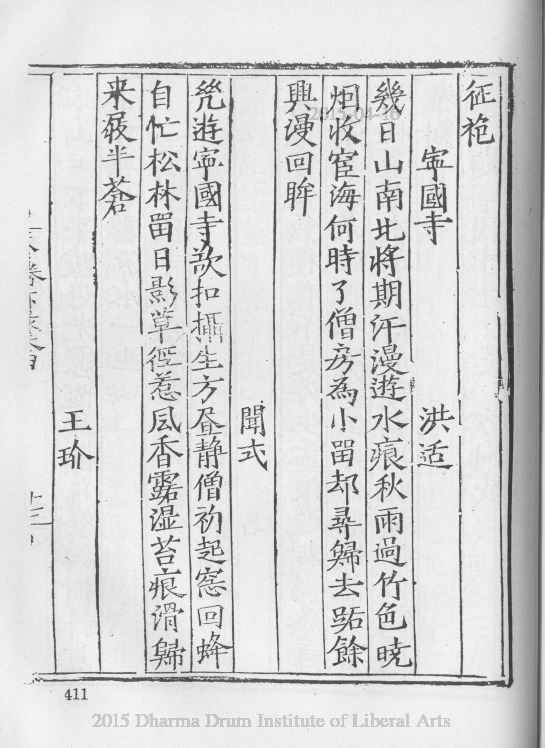 征袍
寧國寺 洪适
幾日山南北將期汗漫遊水痕秋雨過竹色曉
烟收宦海何時了僧房為小留却尋歸去路餘
興漫回眸
聞式
幾遊寧國寺欲扣攝生方昼静僧初起窓回蜂
自忙松林留日影草徑惹風香露湿苔痕滑歸
来屐半蒼
王玠
411
2015-04-16
2015 Dharma Drum Institute of Liberal Arts